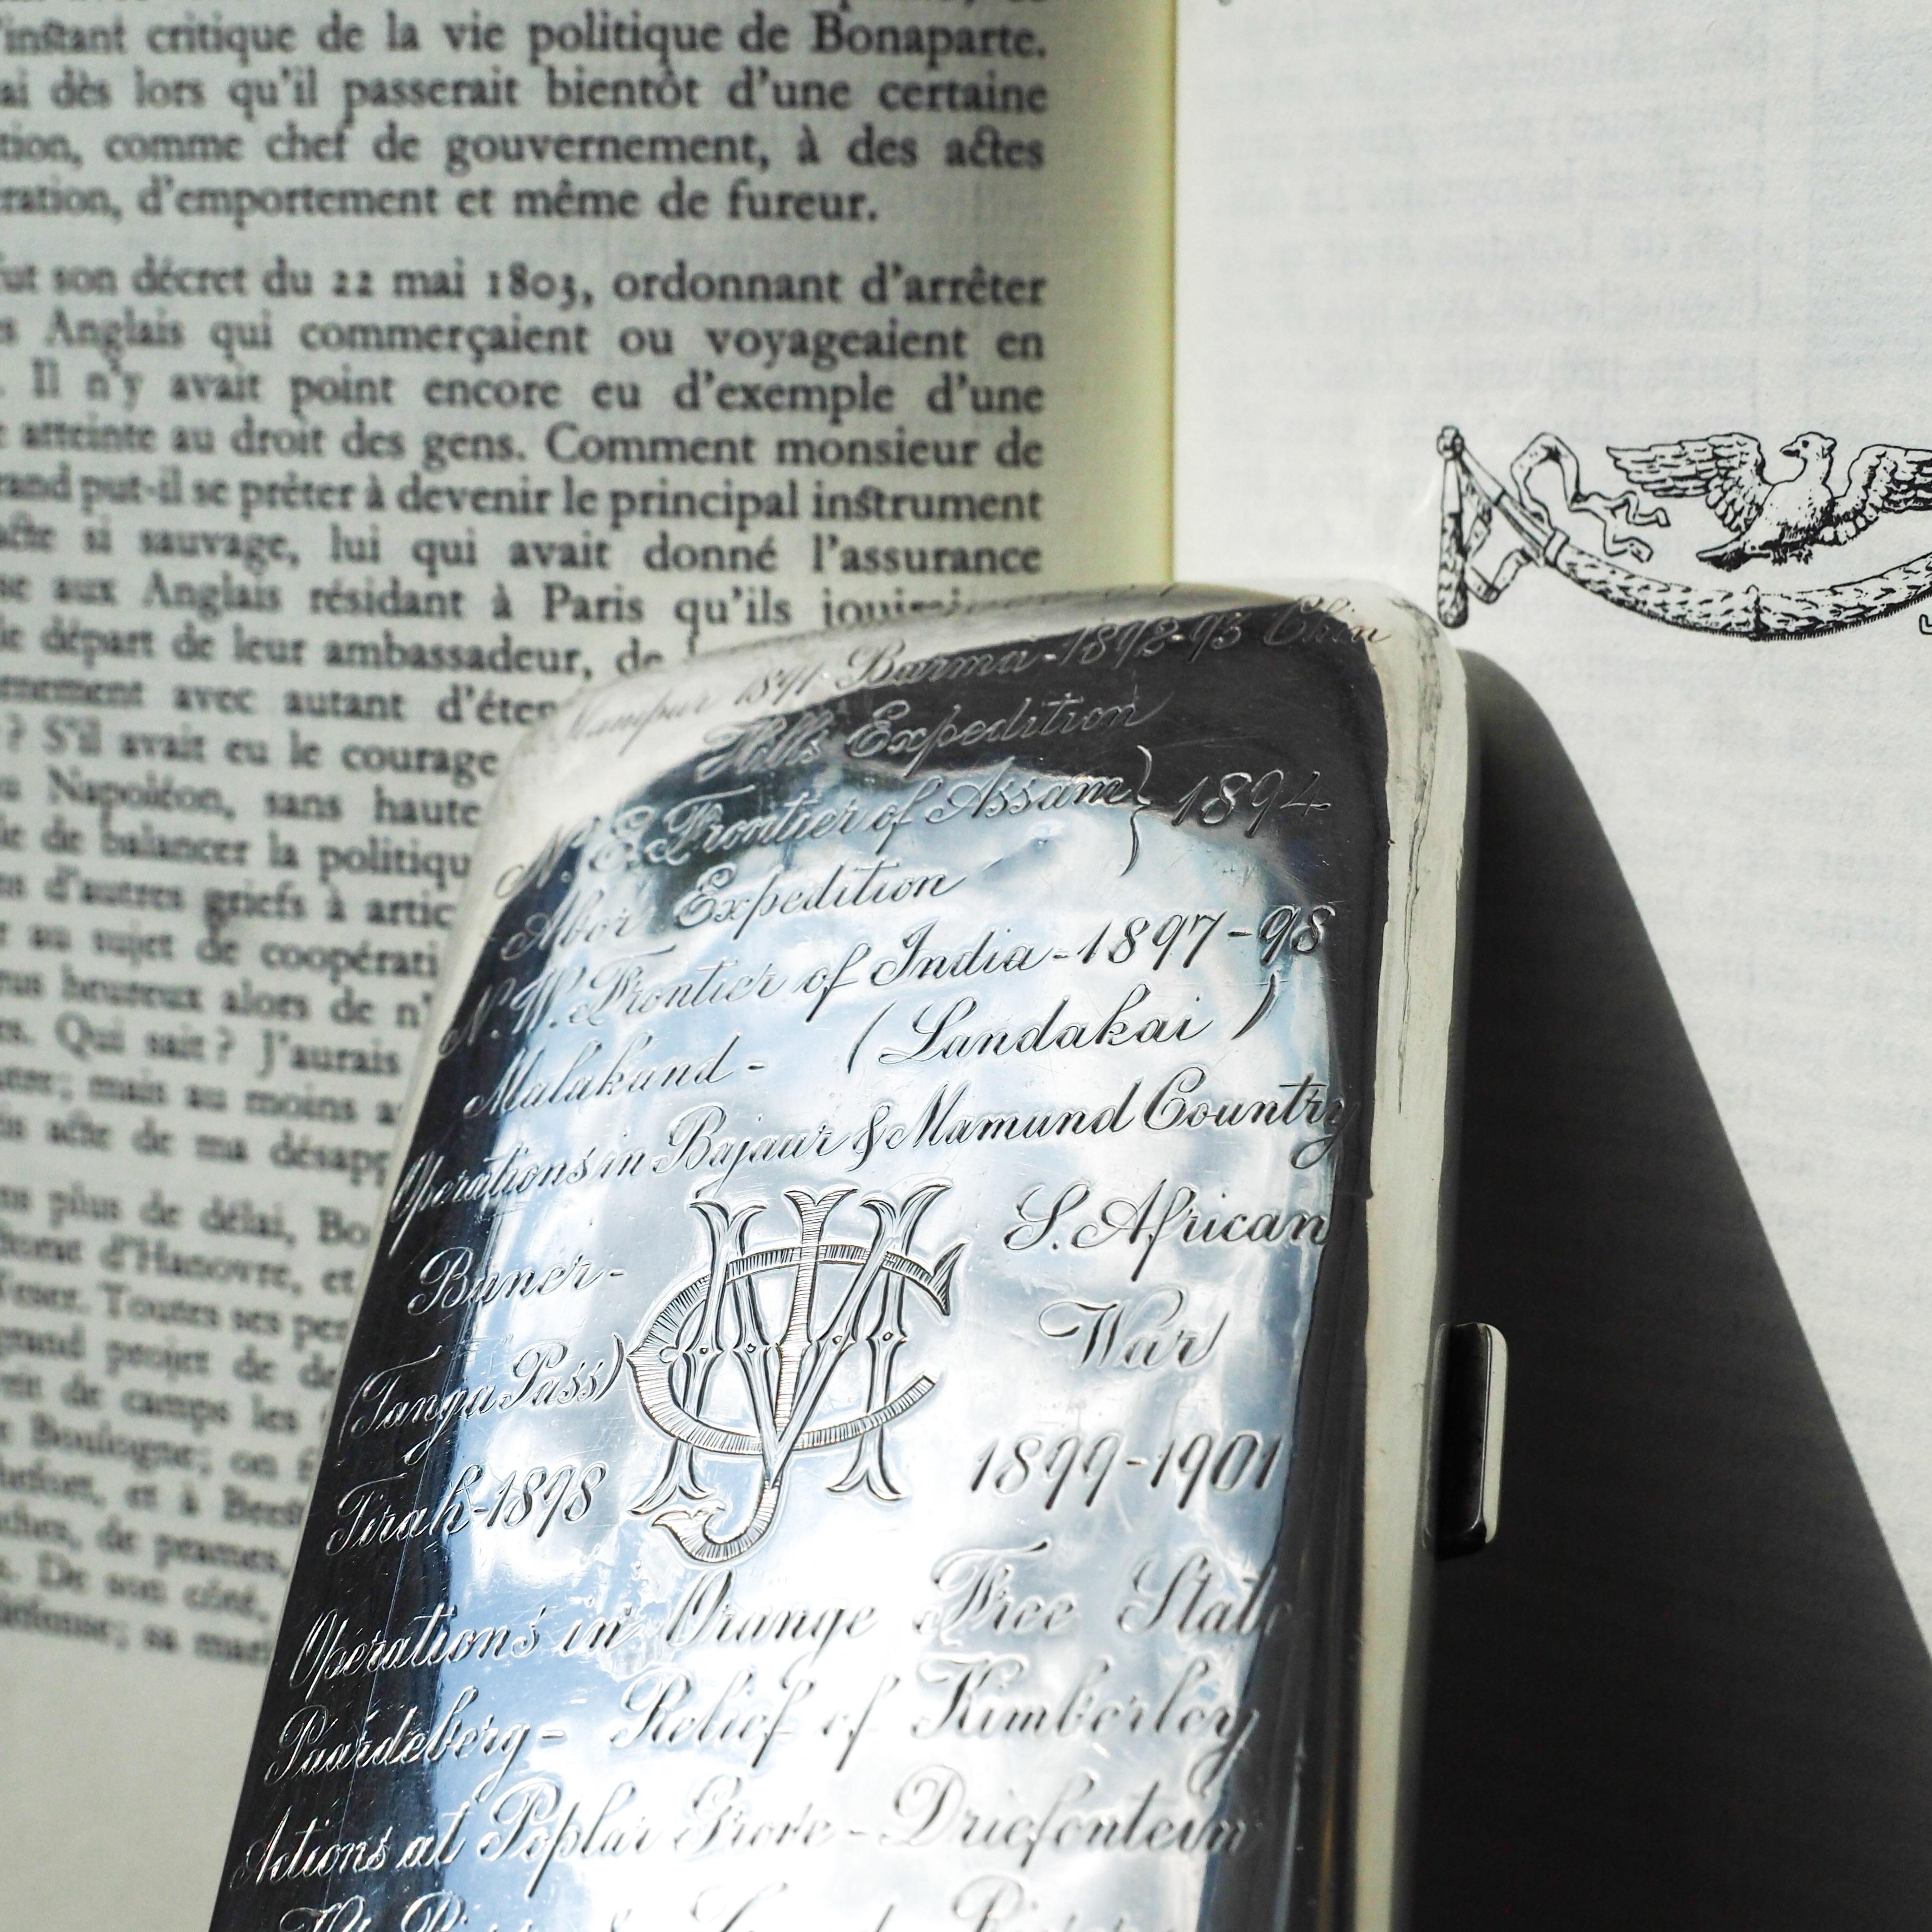 l'instant critique de la vie politique de Bonaparte.
ai dès lors qu'il passerait bientôt d'une certaine
tion, comme chef de gouvernement, à des actes
ration, d'emportement et même de fureur.
fut son décret du 22 mai 1803, ordonnant d'arrêter
s Anglais qui commerçaient ou voyageaient en
. Il n'y avait point encore eu d'exemple d'une
e atteinte au droit des gens. Comment monsieur de
rand put-il se prêter à devenir le principal instrument
acte si sauvage, lui qui avait donné l'assurance
se aux Anglais résidant à Paris qu'ils
le départ de leur ambassadeur, de
rnement avec autant d'éten
? S'il avait eu le courage
Napoléon, sans haute
de balancer la politiqu
d'autres griefs à artic
au sujet de coopérati
rus heureux alors de n'
es. Qui sait ? J'aurais
mais au moins a
acte de ma désapp
plus de délai, Bo
d'Hanovre, et
Toutes ses pe
grand projet de de
de camps les
Boulogne; on
et à
de prames,
De son côté,
sa mari
Manipur 1891. Burma-1892-93 Chin
Hills Expedition
N. E. Frontier of Assam } 1894
Abor Expedition
N. W. Frontier of India-1897-98
Malakand - (Landakai)
Operations in Bajaur & Mamund Country
Buner-
(Tanga Pass)
Tirah-1898
S. African
War
1899-1901
Operations in Orange Free State
Paardeberg- Relief of Kimberley
Actions at Poplar Grove - Driefontein